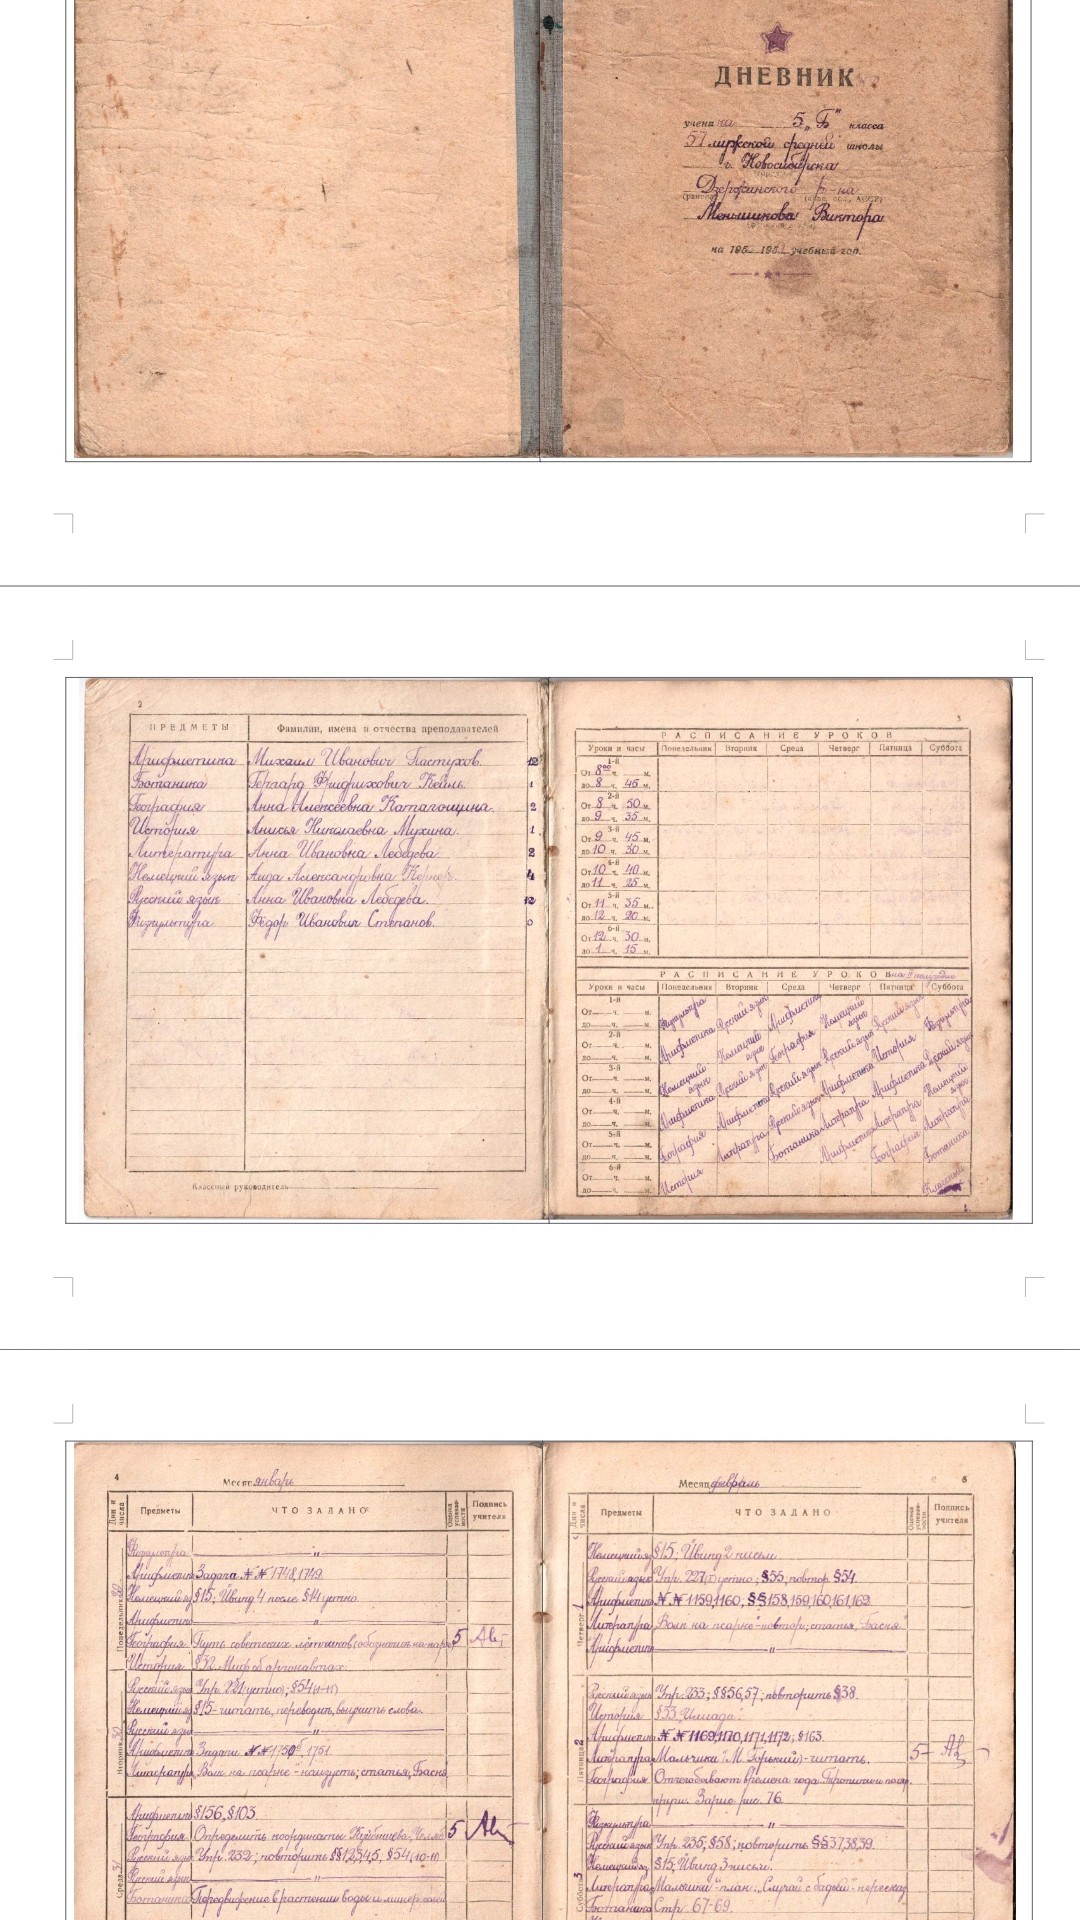 ДНЕВНИК
учени ка 5 „Б" класса
57 мужской средней школы
г. Новосибирска
Дзержинского р-на
Меньшикова Виктора
на 195 195 учебный год.
2
ПРЕДМЕТЫ Фамилии, имена и отчества преподавателей
Арифметика Михаил Иванович Пастухов. 12
Ботаника Гергард Фридрихович Кейль. 1
География Анна Алексеевна 2
История Анисья Николаевна Мухина. 1
Литература Анна Ивановна Лебедева 2
Немецкий язык Аида Александровна 4
Русский язык Анна Ивановна Лебедева. 12
Физкультура Фёдор Иванович Степанов. 0
Классный руководитель
3
РАСПИСАНИЕ УРОКОВ
Уроки и часы Понедельник Вторник Среда Четверг Пятница Суббота
1-й
От 8 00 м.
до 8 ч. 45 м.
2-й
От 8 ч. 50 м.
до 9 ч. 35 м.
3-й
От 9 ч. 45 м.
до 10 ч. 30 м.
4-й
От 10 ч. 40 м.
до 11 ч. 25 м.
5-й
От 11 ч. 35 м.
до 12 ч. 20 м.
6-й
От 12 ч. 30 м.
до 1 ч. 15 м.
РАСПИСАНИЕ УРОКОВ на II полугодие
Уроки и часы Понедельник Вторник Среда Четверг Пятница Суббота
1-й
От ч. м. Физкультура Русский язык Арифметика Немецкий язык Русский язык Физкультура
до ч. м.
2-й
От ч. м. Арифметика Немецкий язык География Русский язык История Русский язык
до ч. м.
3-й
От ч. м. Немецкий язык Русский язык Русский язык Арифметика Арифметика Немецкий язык
до ч. м.
4-й
От ч. м. Арифметика Арифметика Русский язык Литература Литература Литература
до ч. м.
5-й
От ч. м. География Литература Ботаника Арифметика География Ботаника
до ч. м.
6-й
От ч. м. История
до ч. м.
4
Месяц январь
Дни и числа Предметы ЧТО ЗАДАНО Оценка успеваемости Подпись учителя
Физкультура "
Арифметика Задача №№ 1748, 1749.
Немецкий яз §15; Übung 4 после §14 устно.
Арифметика "
Понедельник География Путь советских лётчиков 5
История §32. Миф об аргонавтах.
Русский язык Упр. 221 устно; §54
Немецкий яз §15 - читать, переводить, выучить слова.
Русский язык "
Вторник Арифметика Задачи №№ 1750, 1751.
Литература Волк на псарне" - наизусть; статья, Басня
Арифметика §156, §103.
География Определить координаты 5
Русский язык Упр. 232; повторить §§1,2,3,4,5, §54
Среда 31 Русский язык "
Ботаника Передвижение в растении воды и
5
Месяц февраль
Дни и числа Предметы ЧТО ЗАДАНО Оценка успеваемости Подпись учителя
Немецкий яз §15. Übung 2 письм.
Русский язык Упр. 227 устно; §55; повтор. §54.
Четверг 1 Арифметика №№ 1159, 1160, §§158, 159, 160, 161, 162.
Литература Волк на псарне" - повтор; статья, Басня."
Арифметика "
Русский язык Упр. 233; §§56, 57; повторить §38.
История §33. „Илиада".
Пятница 2 Арифметика №№ 1169, 1170, 1171, 1172; §163.
Литература Мальчики" (М. Горький) - читать. 5-
География Отчего бывают времена года.
рис. 76.
Физкультура "
Русский язык Упр. 235, §58; повторить §§37, 38, 39.
Немецкий яз §15; Übung 3 письм.
Суббота 3 Литература Мальчики" - план. „Случай с - пересказ
Ботаника Стр. 67-69.